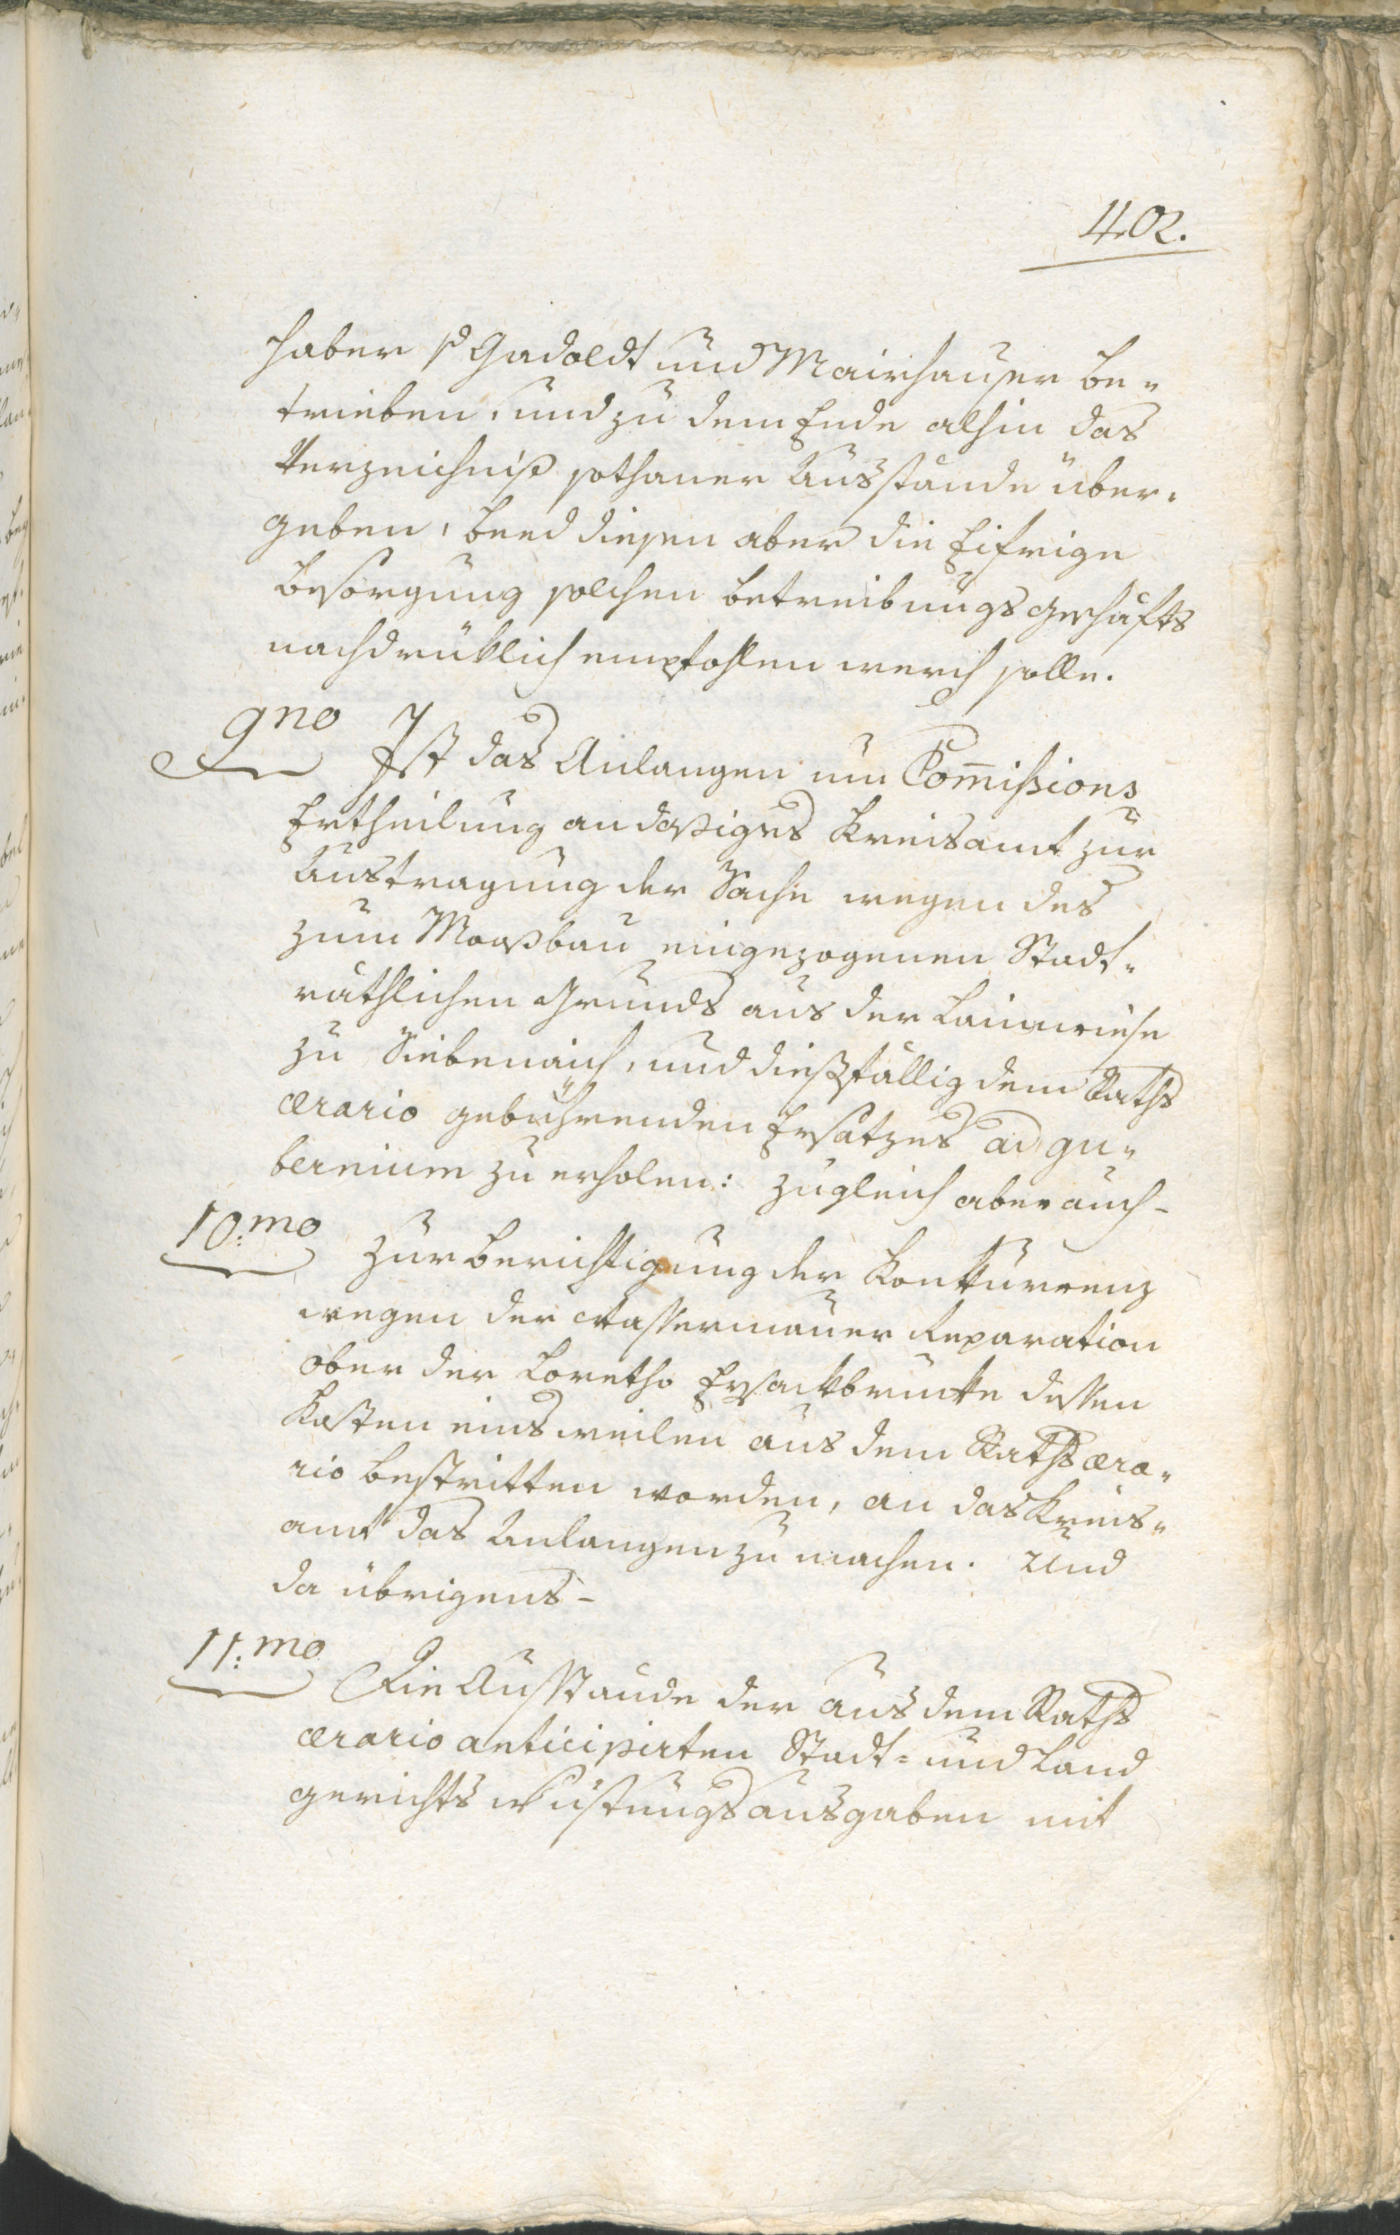 402.
haber H Gadoldt und Mairhauser be-
trieben, und zu dem Ende alhin das
Verzeichniß sothaner Ausstände über-
geben, beed diesen aber die Eifrige
besorgung solchen betreibungs geschäfts
nachdrüklich empfohlen werd solle.
9no Ist das Anlangen um Com̅ißions
Ertheilung an daßiges Kreisamt zur
Austragung der Sache wegen des
zum Moosbau eingezogenen Stadt-
räthlichen Grunds aus der Laimwiese
zu Siebenaich, und dießfällig dem Raths
ærario gebührenden Ersatzes ad gu-
bernium zu erholen: zugleich aber auch-
10:mo zur berichtigung der Konkurrenz
wegen der Wassermauer Reparation
ober der Loretho Eysackbrücke dessen
Kosten einsweilen aus dem Raths æra-
rio bestritten worden, an das Kreis-
amt das Anlangen zu machen. Und
da übrigens-
11:mo Die Ausstände der aus dem Raths
ærario anticipirten Stadt- und Land
gerichts Wustungsausgaben mit